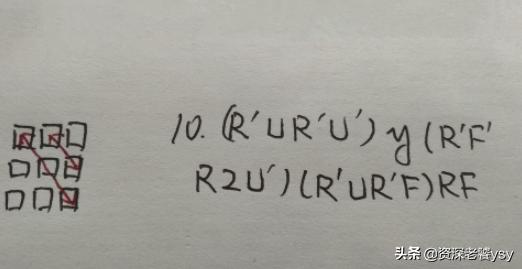 10. (R'UR'U') y (R'F'
R2U') (R'UR'F) RF
头条 @资深老饕ysy